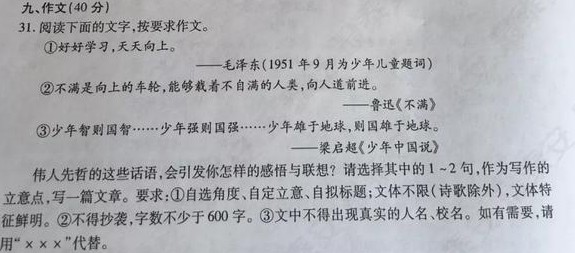 九、作文(40分)
31.阅读下面的文字,按要求作文。
①好好学习,天天向上。
——毛泽东(1951年9月为少年儿童题词)
②不满是向上的车轮,能够载着不自满的人类,向人道前进。
——鲁迅《不满》
③少年智则国智……少年强则国强……少年雄于地球,则国雄于地球。
——梁启超《少年中国说》
伟人先哲的这些话语,会引发你怎样的感悟与联想？请选择其中的1~2句,作为写作的
立意点,写一篇文章。要求:①自选角度、自定立意、自拟标题;文体不限(诗歌除外),文体特
征鲜明。②不得抄袭,字数不少于600字。③文中不得出现真实的人名、校名。如有需要,请
用“×××”代替。